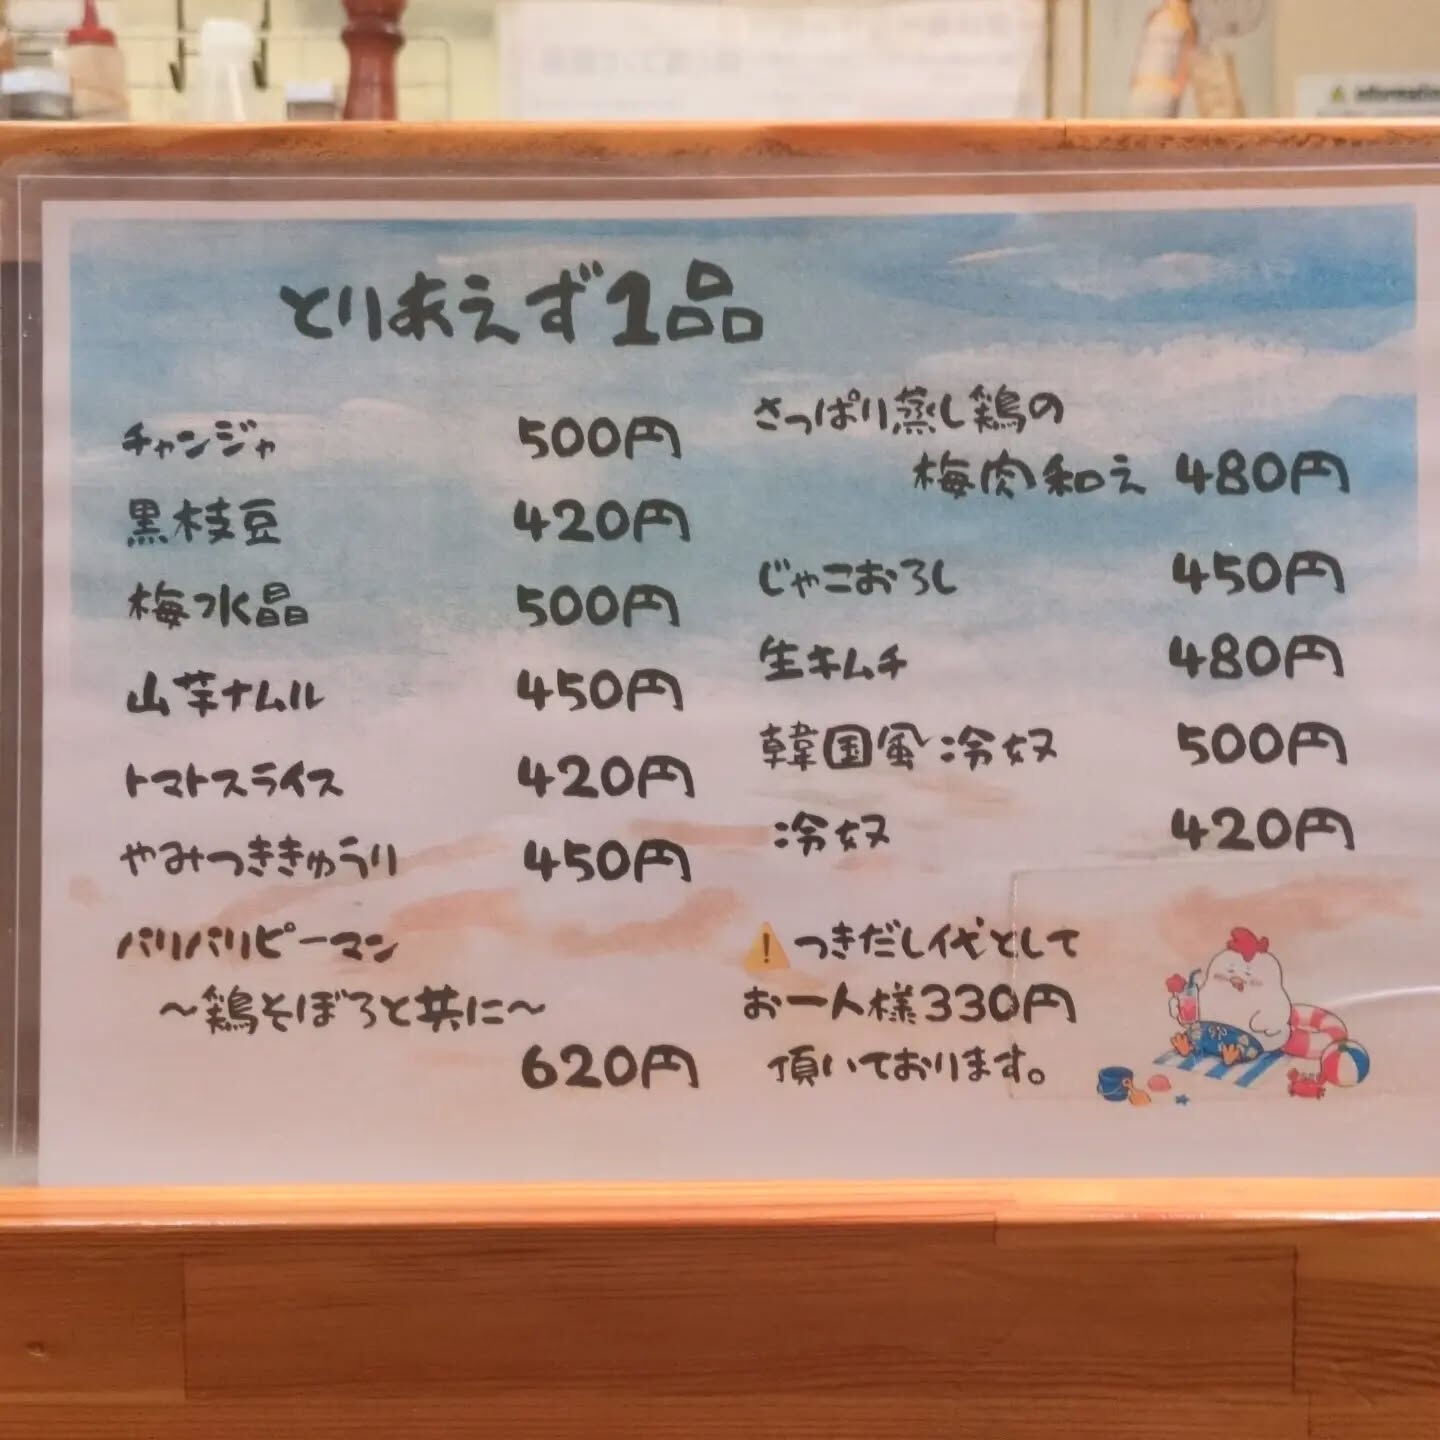 とりあえず1品
チャンジャ 500円
黒枝豆 420円
梅水晶 500円
山芋ナムル 450円
トマトスライス 420円
やみつききゅうり 450円
パリパリピーマン
〜鶏そぼろと共に〜
620円
さっぱり蒸し鶏の
梅肉和え 480円
じゃこおろし 450円
生キムチ 480円
韓国風冷奴 500円
冷奴 420円
つきだし代として
お一人様330円
頂いております。
information